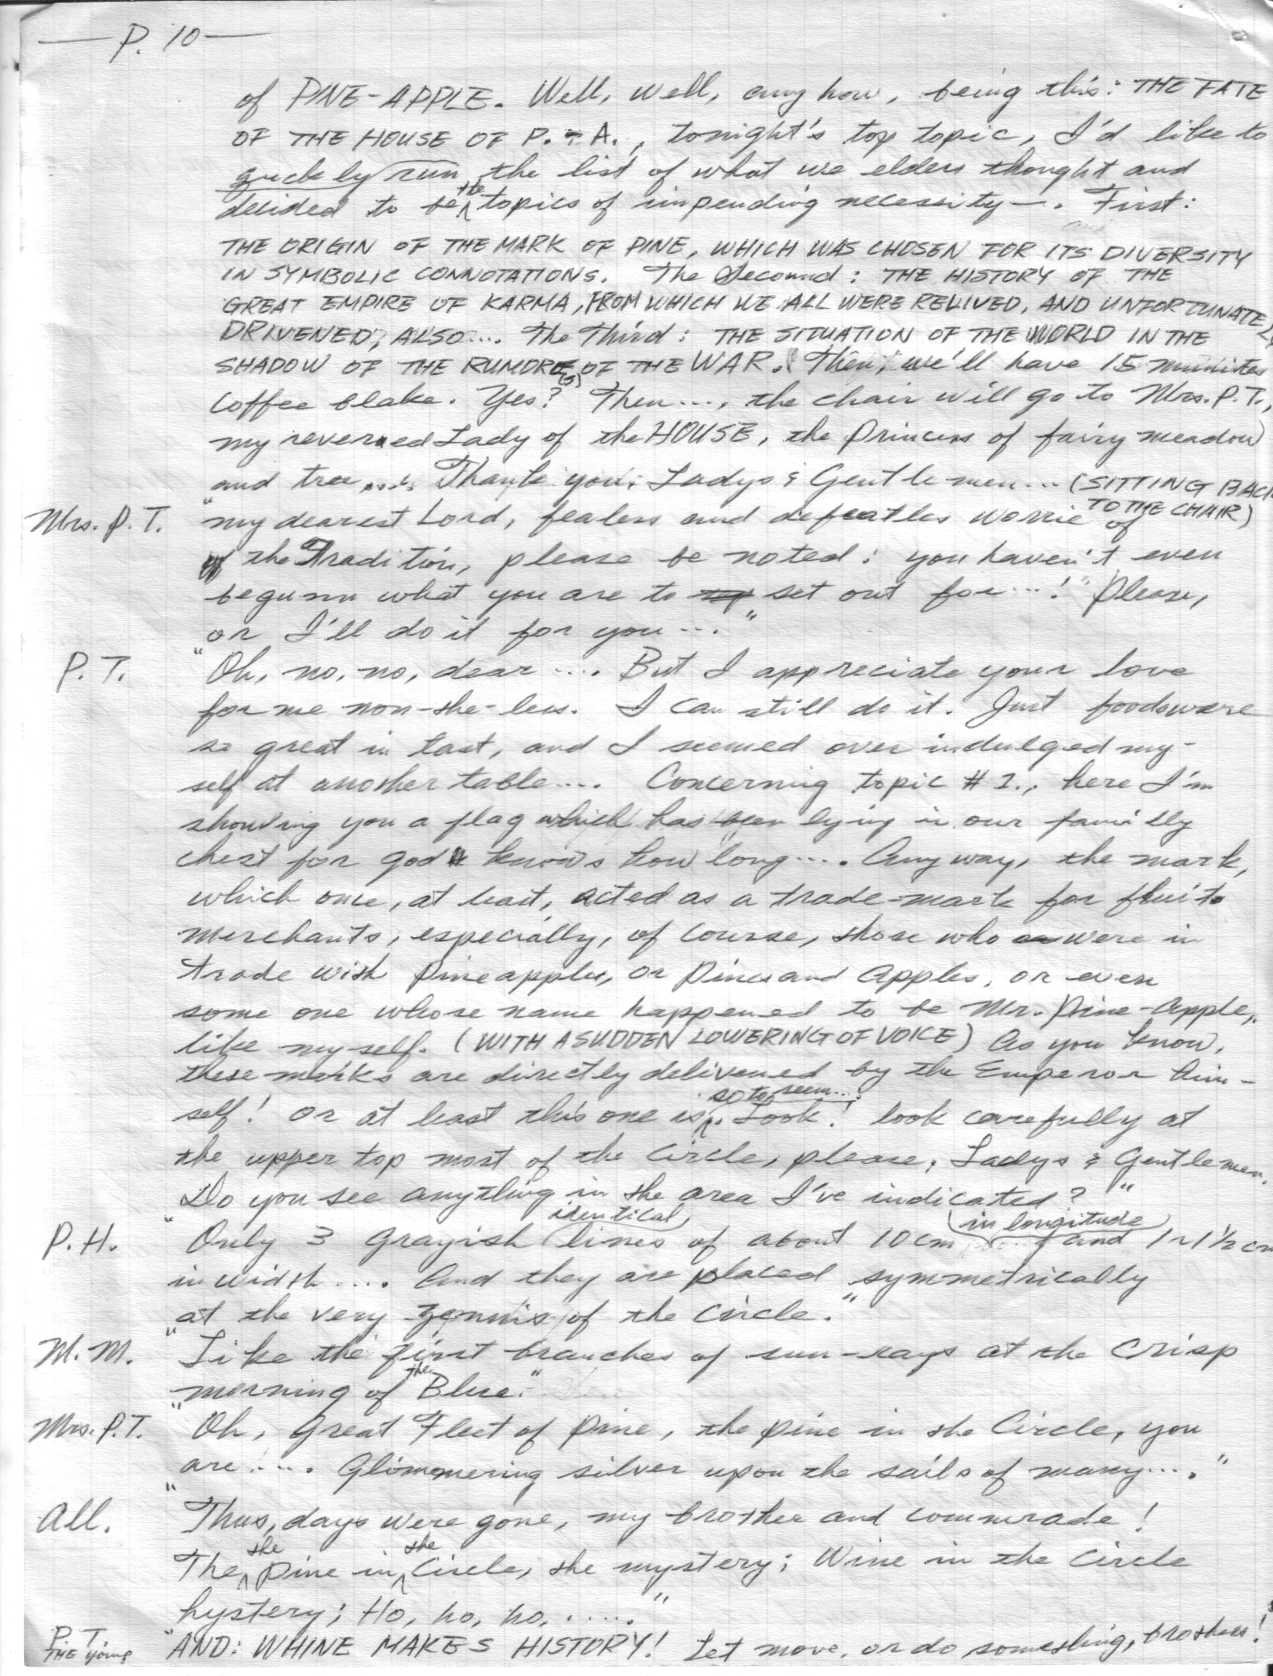 — P. 10 —
of PINE-APPLE. Well, well, any how, being this: THE FATE
OF THE HOUSE OF P. & A., tonight's top topic, I'd like to
quickly run the list of what we elders thought and
decided to be the topics of impending necessity —. First:
THE ORIGIN OF THE MARK OF PINE, WHICH WAS CHOSEN FOR ITS DIVERSITY
IN SYMBOLIC CONNOTATIONS. The Second: THE HISTORY OF THE
GREAT EMPIRE OF KARMA, FROM WHICH WE ALL WERE RELIVED, AND UNFORTUNATELY
DRIVENED, ALSO.... The Third: THE SITUATION OF THE WORLD IN THE
SHADOW OF THE RUMORE(S) OF THE WAR. Then, we'll have 15 minites
coffee blake. Yes? Then..., the chair will go to Mrs. P.T.,
my reverned Lady of the HOUSE, the Princess of fairy meadow
and tree..... Thank you, Ladys & Gentle men... (SITTING BACK
TO THE CHAIR)
Mrs. P.T. "my dearest Lord, fealess and defeatles worrie of
the Tradition, please be noted: you haven't even
begunn what you are to set out for...! Please,
or I'll do it for you..."
P.T. "Oh, no, no, dear.... But I appreciate your love
for me non-the-less. I can still do it. Just foods were
so great in tast, and I seemed over indulged my-
self at another table.... Concerning topic #1., here I'm
showing you a flag which has been lying in our familly
chest for god knows how long.... Any way, the mark,
which once, at least, acted as a trade-mark for fluits
merchants, especially, of course, those who were in
trade with pineapples, or pines and apples, or even
some one whose name happened to be Mr. Pine-Apple,
like myself. (WITH A SUDDEN LOWERING OF VOICE) As you know,
these marks are directly delivered by the Emperor him-
self! Or at least this one is, so to seem.... Look! look carefully at
the upper top most of the circle, please, Ladys & Gentlemen.
Do you see anything in the area I've indicated?"
P.H. "Only 3 grayish identical lines of about 10 cm in longitude and 1~1½ cm
in width.... And they are placed symmetrically
at the very zennis of the circle."
M.M. "Like the first branches of sun-rays at the crisp
morning of the Blue."
Mrs. P.T. "Oh, great Fleet of pine, the pine in the Circle, you
are..... Glimmering silver upon the sails of many...."
All. "Thus, days were gone, my brother and commrade!
The the pine in the Circle, the mystery; Wine in the Circle
hystery; Ho, ho, ho,....."
P.T. THE young "AND: WHINE MAKES HISTORY! Let move, or do something, brothers!